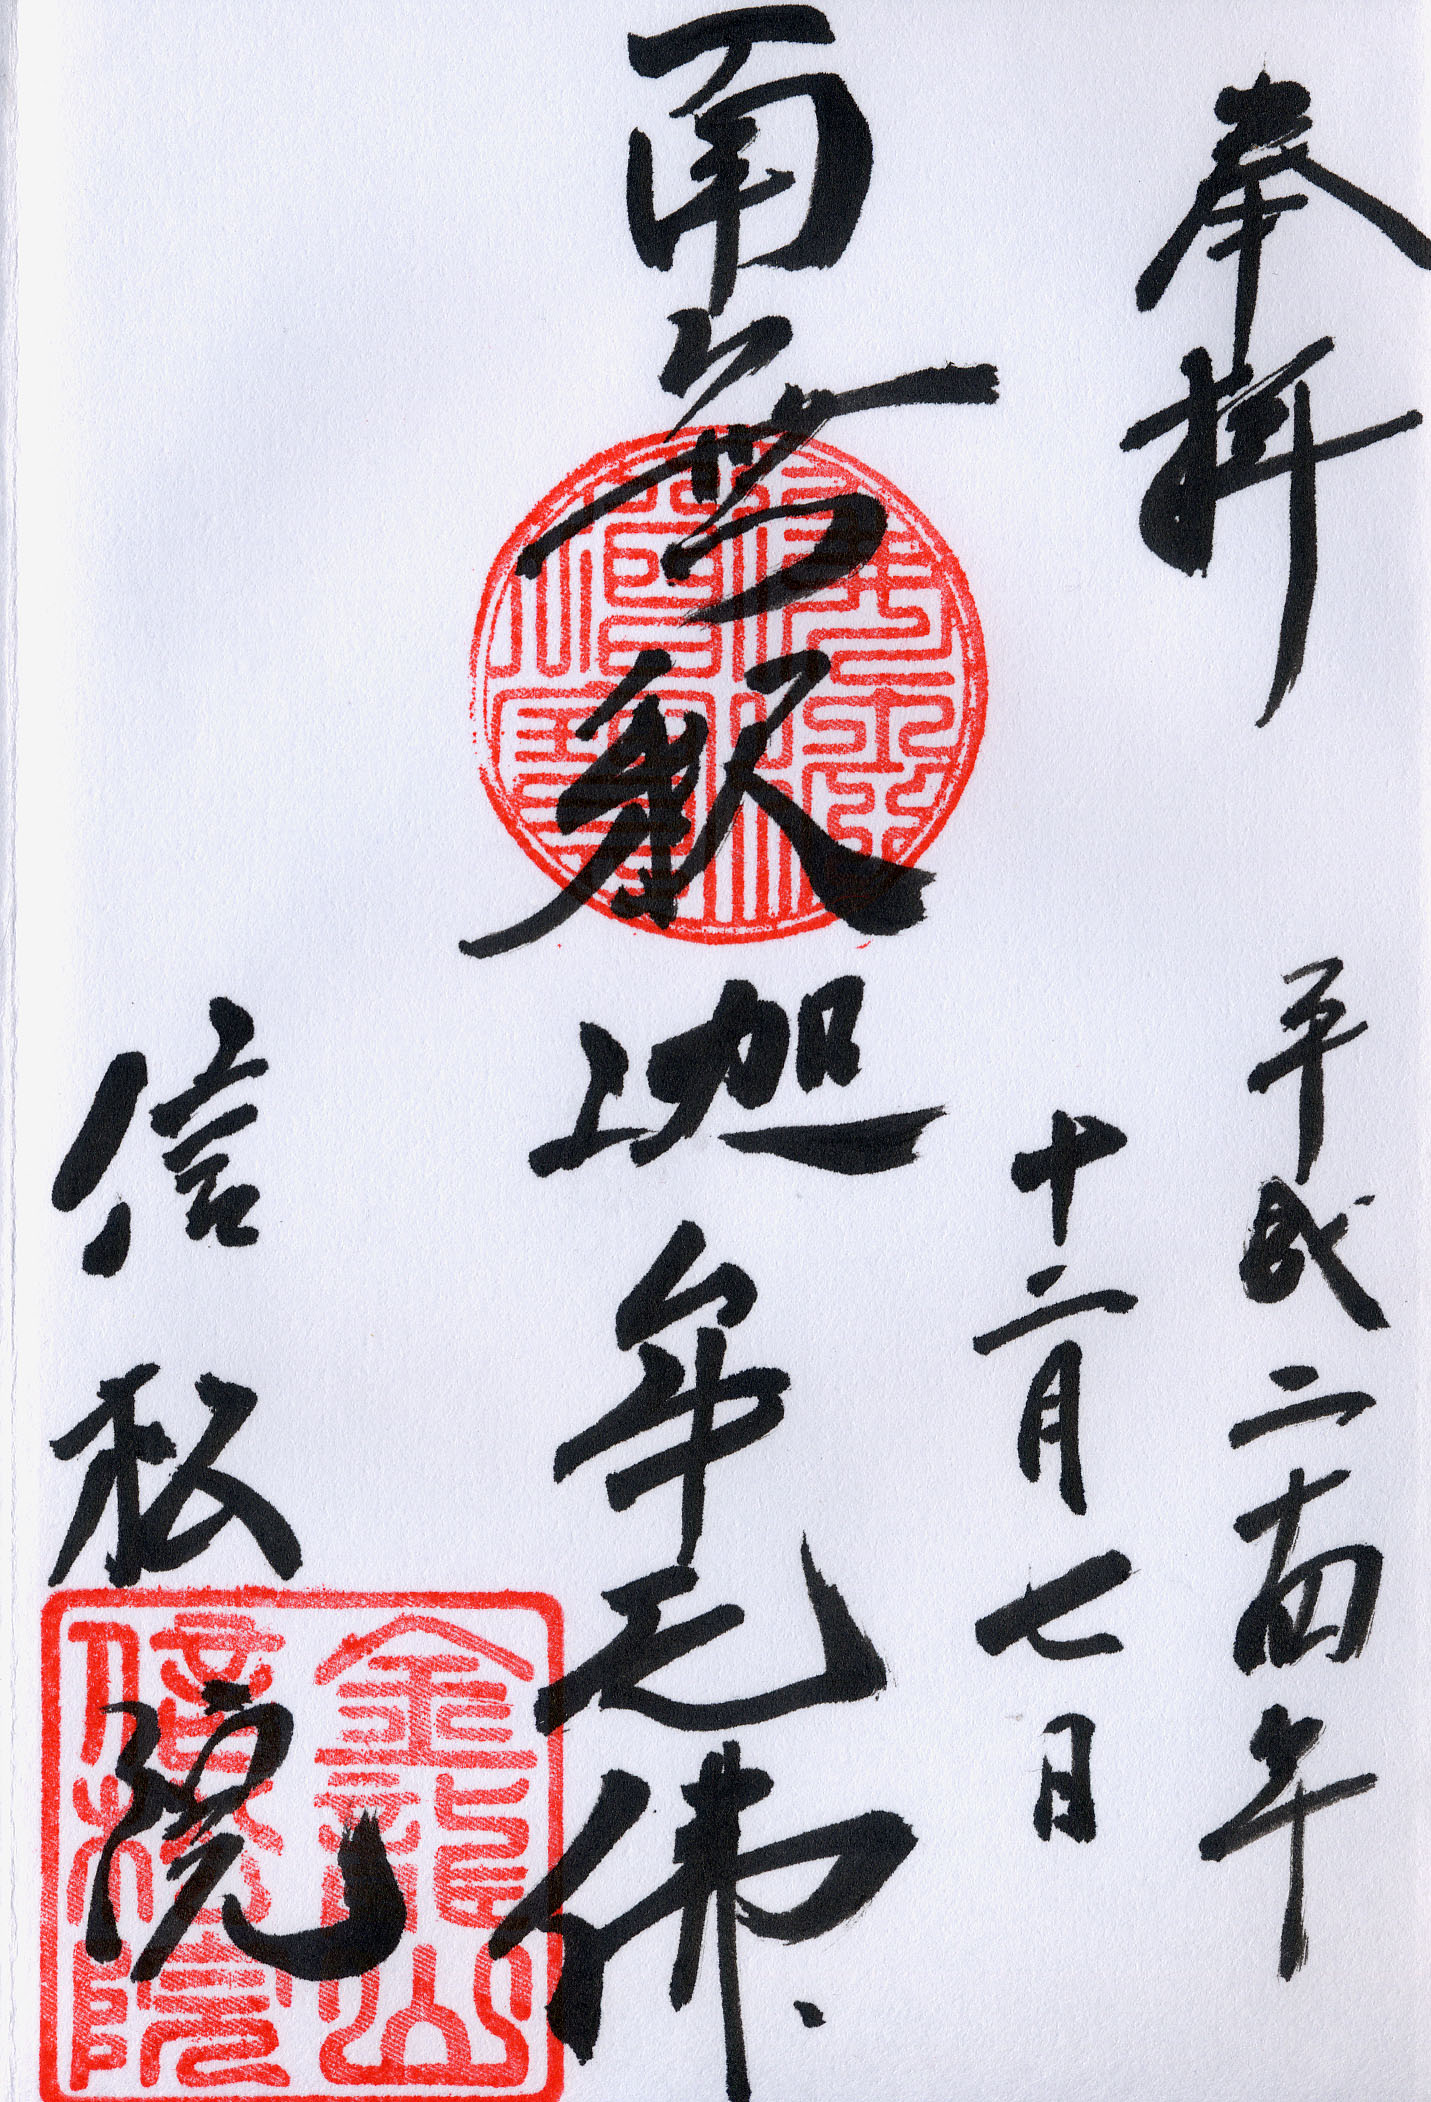 奉拝
平成二十四年
十二月七日
南無釈迦牟尼佛
信松院
金龍山
信松院